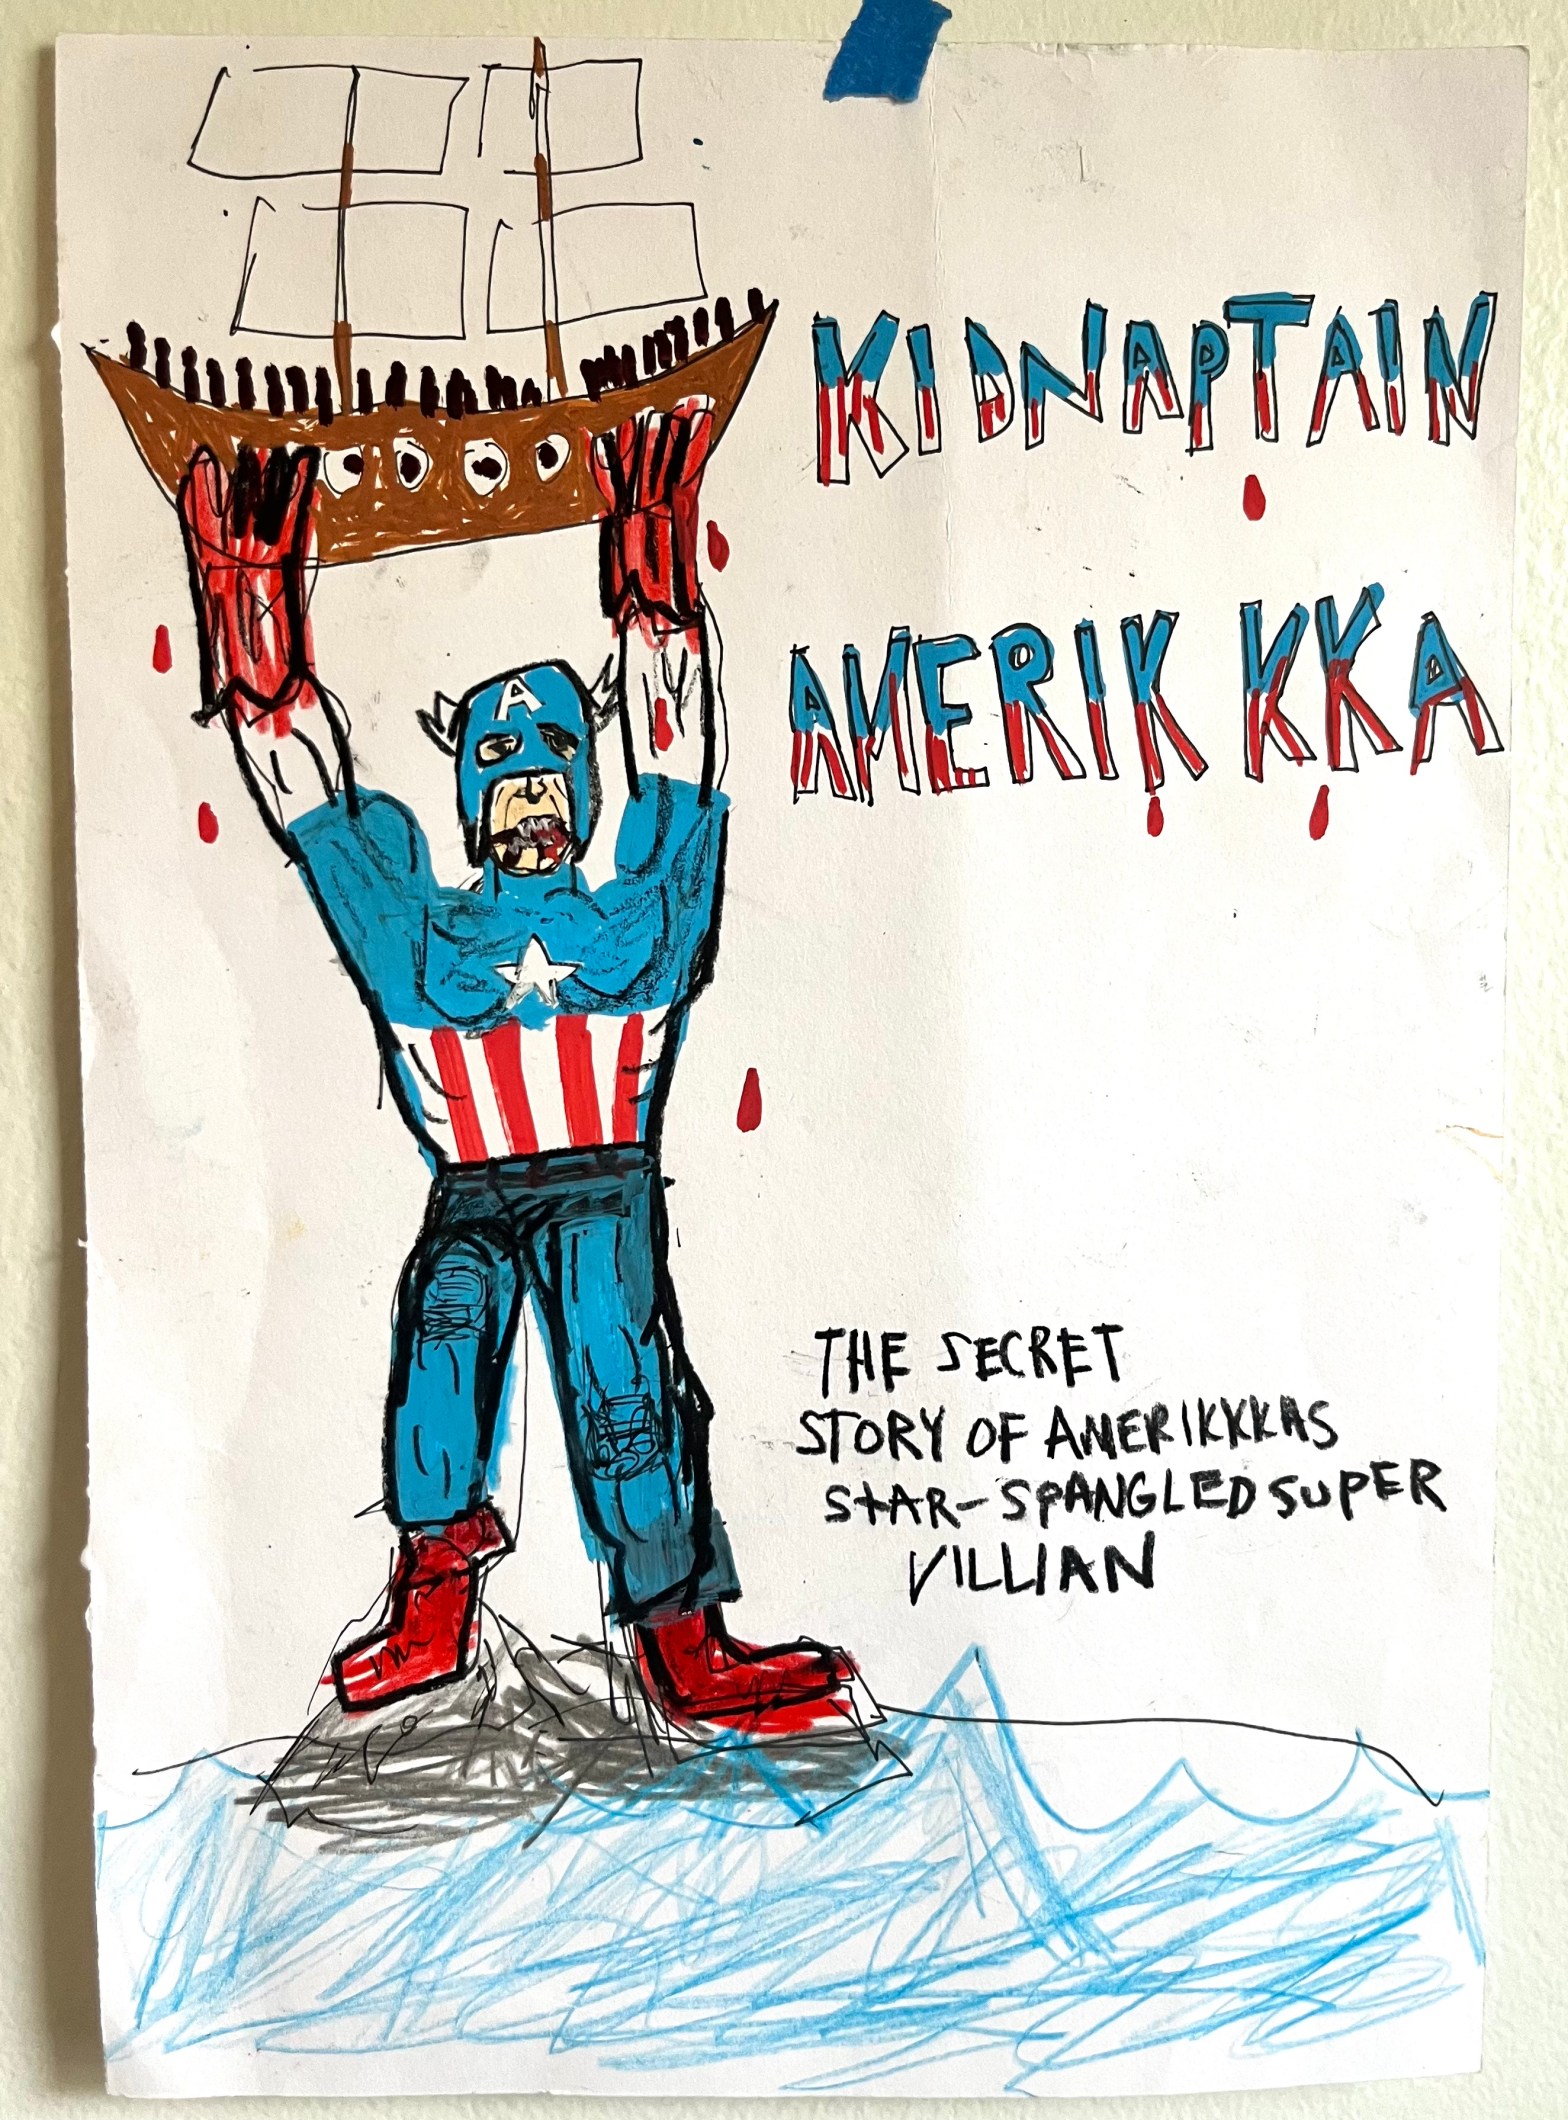 A
KIDNAPTAIN
AMERIKKKA
THE SECRET
STORY OF AMERIKKKAS
STAR-SPANGLED SUPER
VILLIAN